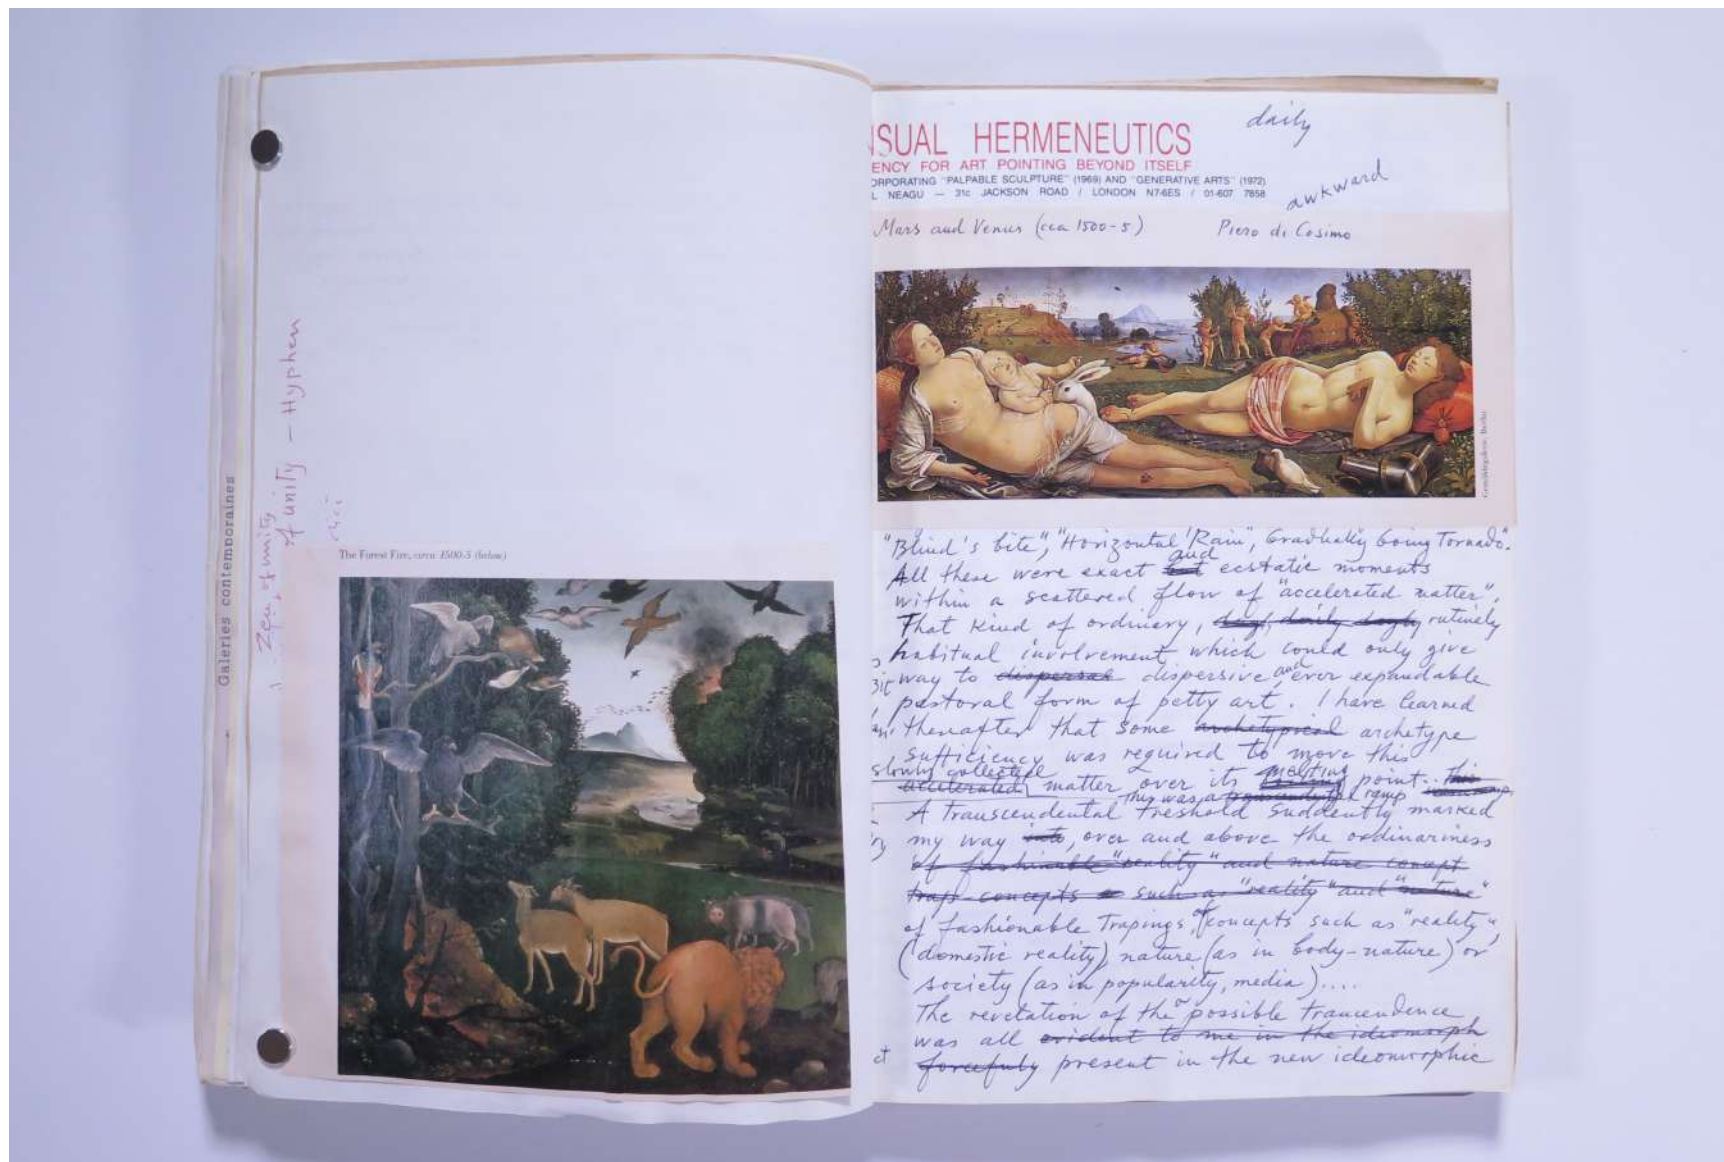 Galeries contemporaines
of unity – Hyphen
of unity
The Forest Fire, circa 1500-5 (below)
ISUAL HERMENEUTICS
ENCY FOR ART POINTING BEYOND ITSELF
ORPORATING "PALPABLE SCULPTURE" (1969) AND "GENERATIVE ARTS" (1972)
L NEAGU — 31c JACKSON ROAD / LONDON N7-6ES / 01-607 7858
daily
awkward
Mars and Venus (cca 1500-5) Piero di Cosimo
Gemäldegalerie, Berlin
"Blind's bite", "Horizontal Rain", Gradually Going Tornado".
All these were exact but and ecstatic moments
within a scattered flow of "accelerated matter".
That kind of ordinery, daily rutinely
habitual involvement which could only give
way to dispersal dispersive and ever expandable
pastoral form of petty art. I have learned
thereafter that some archetypical archetype
sufficiency was required to move this
slowly collective
accelerated matter over its melting point. this
This was a ramp
A transcendental treshold suddently marked
my way into, over and above the ordinariness
of fashinable "reality" and nature concept
trap-concepts such as "reality" and "nature"
of fashionable trapings, of concepts such as "reality",
(domestic reality) nature (as in body-nature) or
society (as in popularity, media)....
The revelation of the possible trancendence
was all evident to me in the ideomorph
forcefuly present in the new ideomorphic
ct